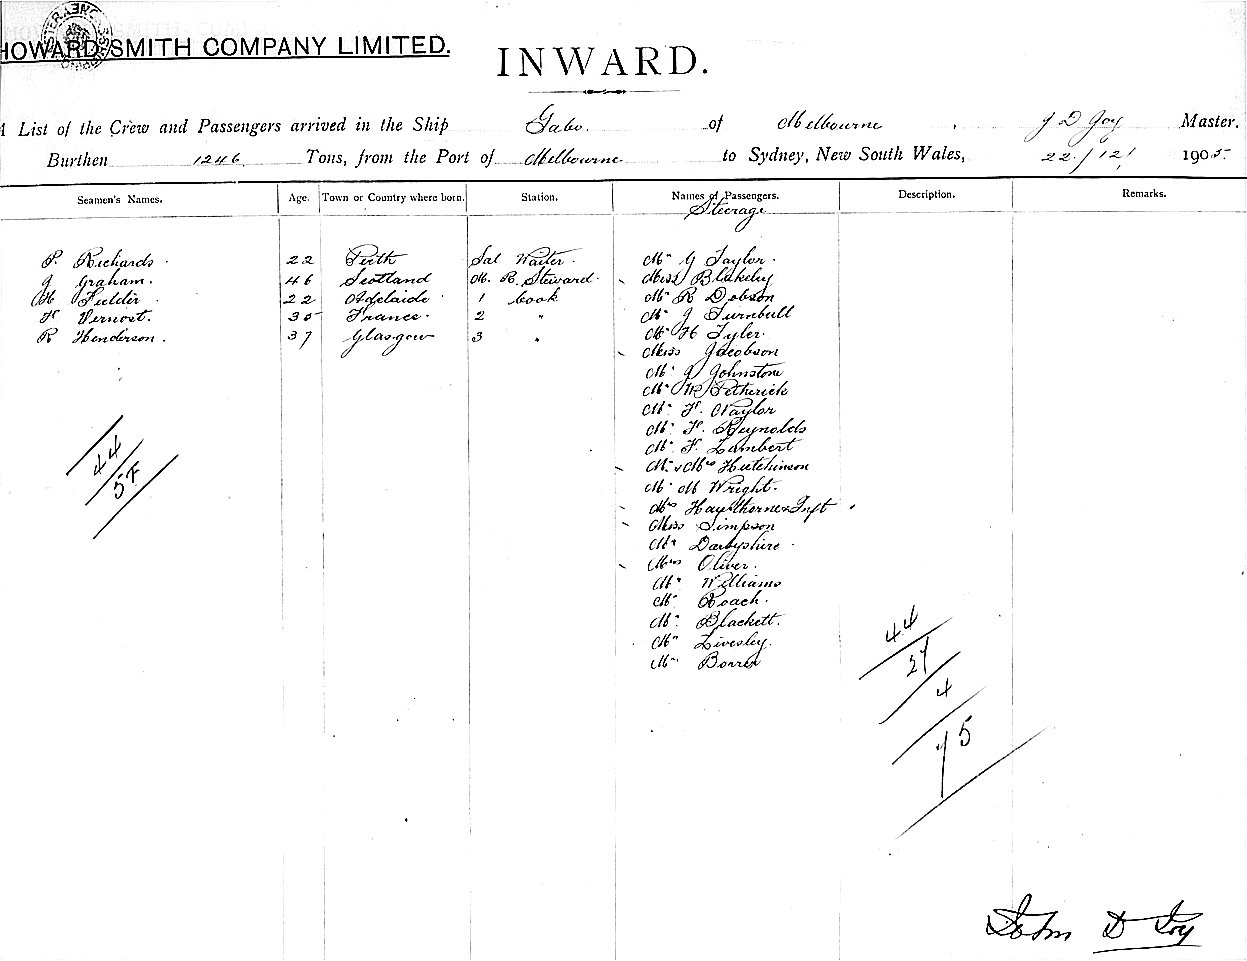 HOWARD SMITH COMPANY LIMITED.
INWARD.
A List of the Crew and Passengers arrived in the Ship Gabo. of Melbourne, J D Joy Master.
Burthen 1246 Tons, from the Port of Melbourne to Sydney, New South Wales, 22/12/ 1905
Seamen's Names. Age. Town or Country where born. Station. Names of Passengers. Description. Remarks.
Steerage
P. Richards 22 Perth Sal Waiter Mr G Taylor
J Graham. 46 Scotland M. R. Steward. Miss Blakeley
H Fielder 22 Adelaide 1 Cook Mr R Dobson
F Vernost. 35 France. 2 " Mr J Turnbull
R Henderson. 37 Glasgow 3 " Mr H Tyler.
Miss Jacobson
Mr J Johnstone
Mr W Petherick
Mr F. Naylor
Mr F. Reynolds
Mr F. Lambert
Mr & Mrs Hutchinson
Mr M Wright.
Mrs Haysthorne & Inft
Miss Simpson
Mr Darbyshire
Mrs Oliver.
Mr Williams
Mr Roach.
Mr Blackett.
Mr Livesley.
Mr Borren
44
57
44
27
4
75
John D Joy